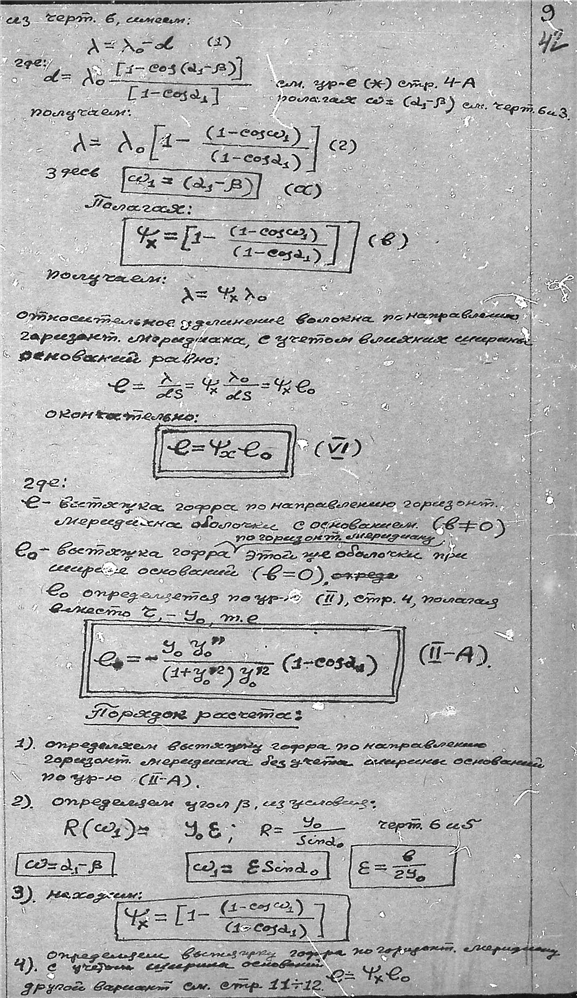 9
42
из черт. 6, имеем:
λ = λ₀ - d (1)
где:
d = λ₀ [1-cos(α₁-β)] / [1-cosα₁] см. ур-е (*) стр. 4-А
полагая ω = (α₁-β) см. черт. 6 и 3.
получаем:
λ = λ₀ [1 - (1-cosω₁)/(1-cosα₁)] (2)
здесь ω₁ = (α₁-β) (α)
Полагая:
Ψₓ = [1 - (1-cosω₁)/(1-cosα₁)] (в)
получаем:
λ = Ψₓ λ₀
относительное удлинение волокна по направлению
горизонт. меридиана, с учетом влияния ширины
оснований равно:
e = λ/dS = Ψₓ λ₀/dS = Ψₓ e₀
окончательно:
e = Ψₓ e₀ (VI)
где:
e - вытяжка гофра по направлению горизонт.
меридиана оболочки с основанием (в≠0)
по горизонт. меридиану
e₀ - вытяжка гофра этой же оболочки при
ширине оснований (в=0),
e₀ определяется по ур-ю (II), стр. 4, полагая
вместо τ, - y₀, т.е
e₀ = - y₀ y₀'' / (1+y₀'²) y₀'² (1-cosα₁) (II-А).
Порядок расчета:
1). определяем вытяжку гофра по направлению
горизонт. меридиана без учета ширины оснований
по ур-ю (II-А).
2). определяем угол β, из условия:
R(ω₁) = y₀ε; R = y₀/Sinα₀ черт. 6 и 5
ω = α₁-β ω₁ = εSinα₀ ε = в/2y₀
3). находим:
Ψₓ = [1 - (1-cosω₁)/(1-cosα₁)]
определяем вытяжку гофра по горизонт. меридиану
4). с учетом ширины оснований e = Ψₓ e₀
другой вариант см. стр 11÷12